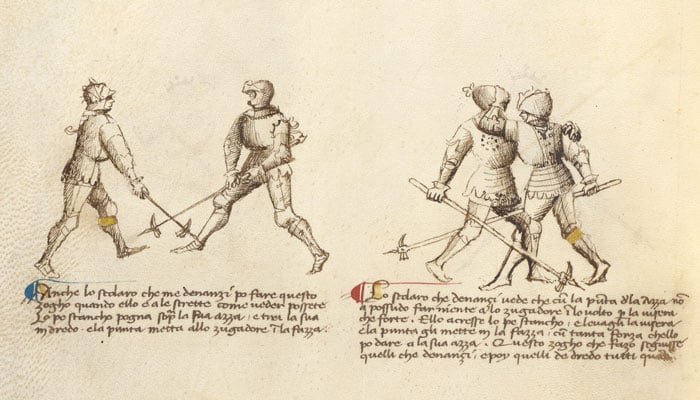 Anche lo scolaro che me denanzi po fare questo
zogho quando ello e a le strette come ueder possete
Lo pe stancho pogna sop̃ la sua azza, e trei la sua
in dredo. e la punta metta allo zugadore ĩ la fazza.
Lo scolaro che denanzi uede che cũ la pũta d̃la azza nõ
a possudo far niente a lo zugadore ĩ lo uolto p la uisera
che forte. Ello acresse lo pe stancho, e leuagli la uisera
e la punta gli mette in la fazza, cũ tanta forza chello
po dare a la sua azza. Questo zogho che fazo seguisse
quelli che denanzi, e poy quelli de dredo tutti